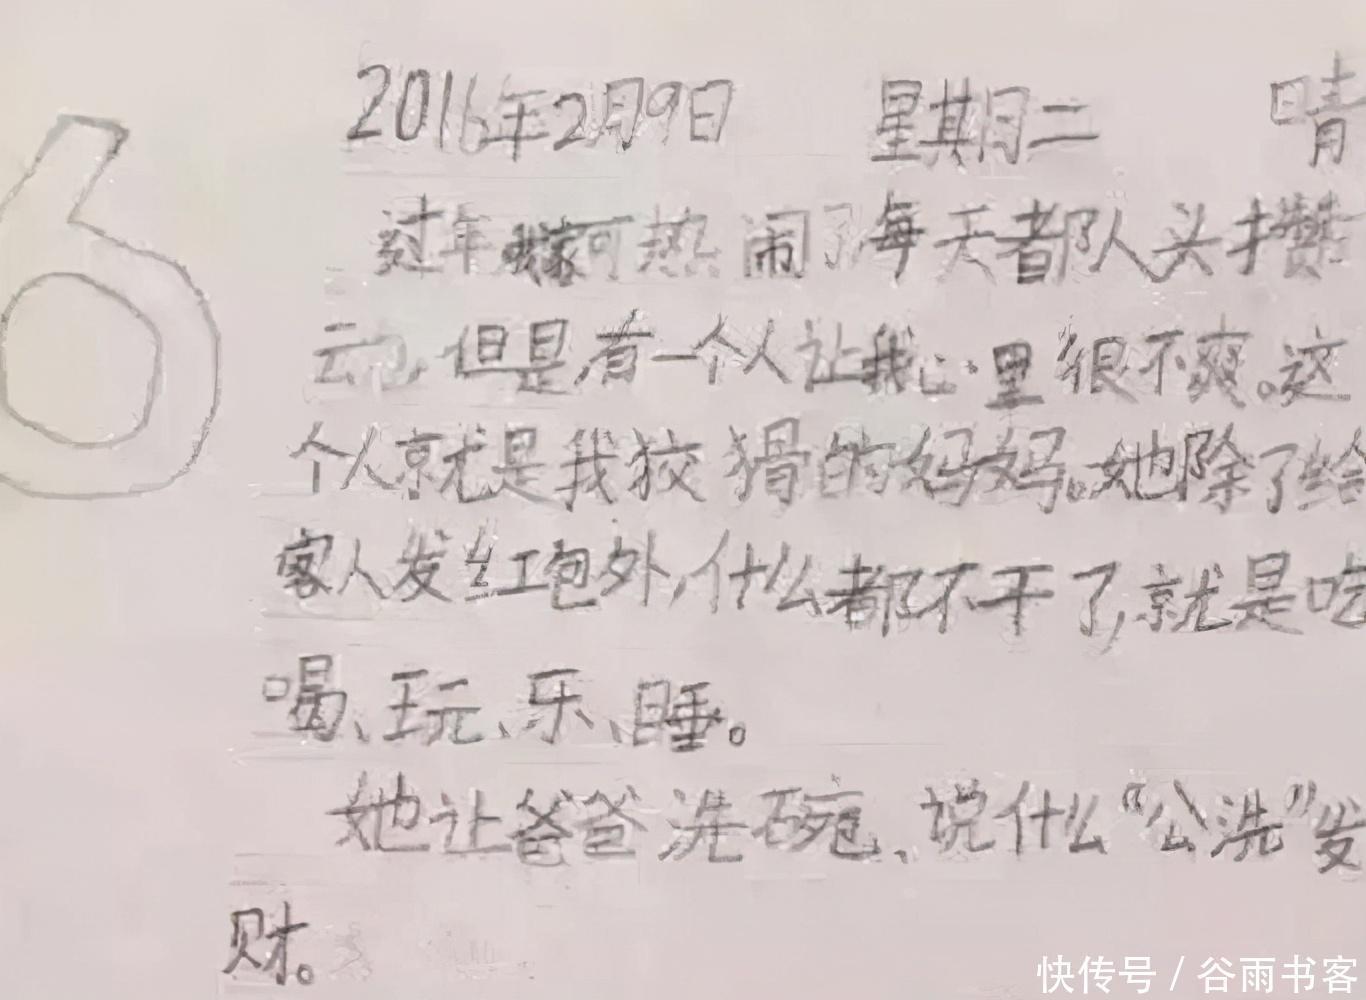 6
2016年2月9日 星期二 晴
过年可热闹了每天都人头攒
云包但是有一个人让我心里很不爽。这
个人就是我狡猾的妈妈。她除了给
客人发红包外,什么都不干了,就是吃
喝、玩、乐、睡。
她让爸爸洗碗、说什么“公洗”发
财。
快传号 / 谷雨书客